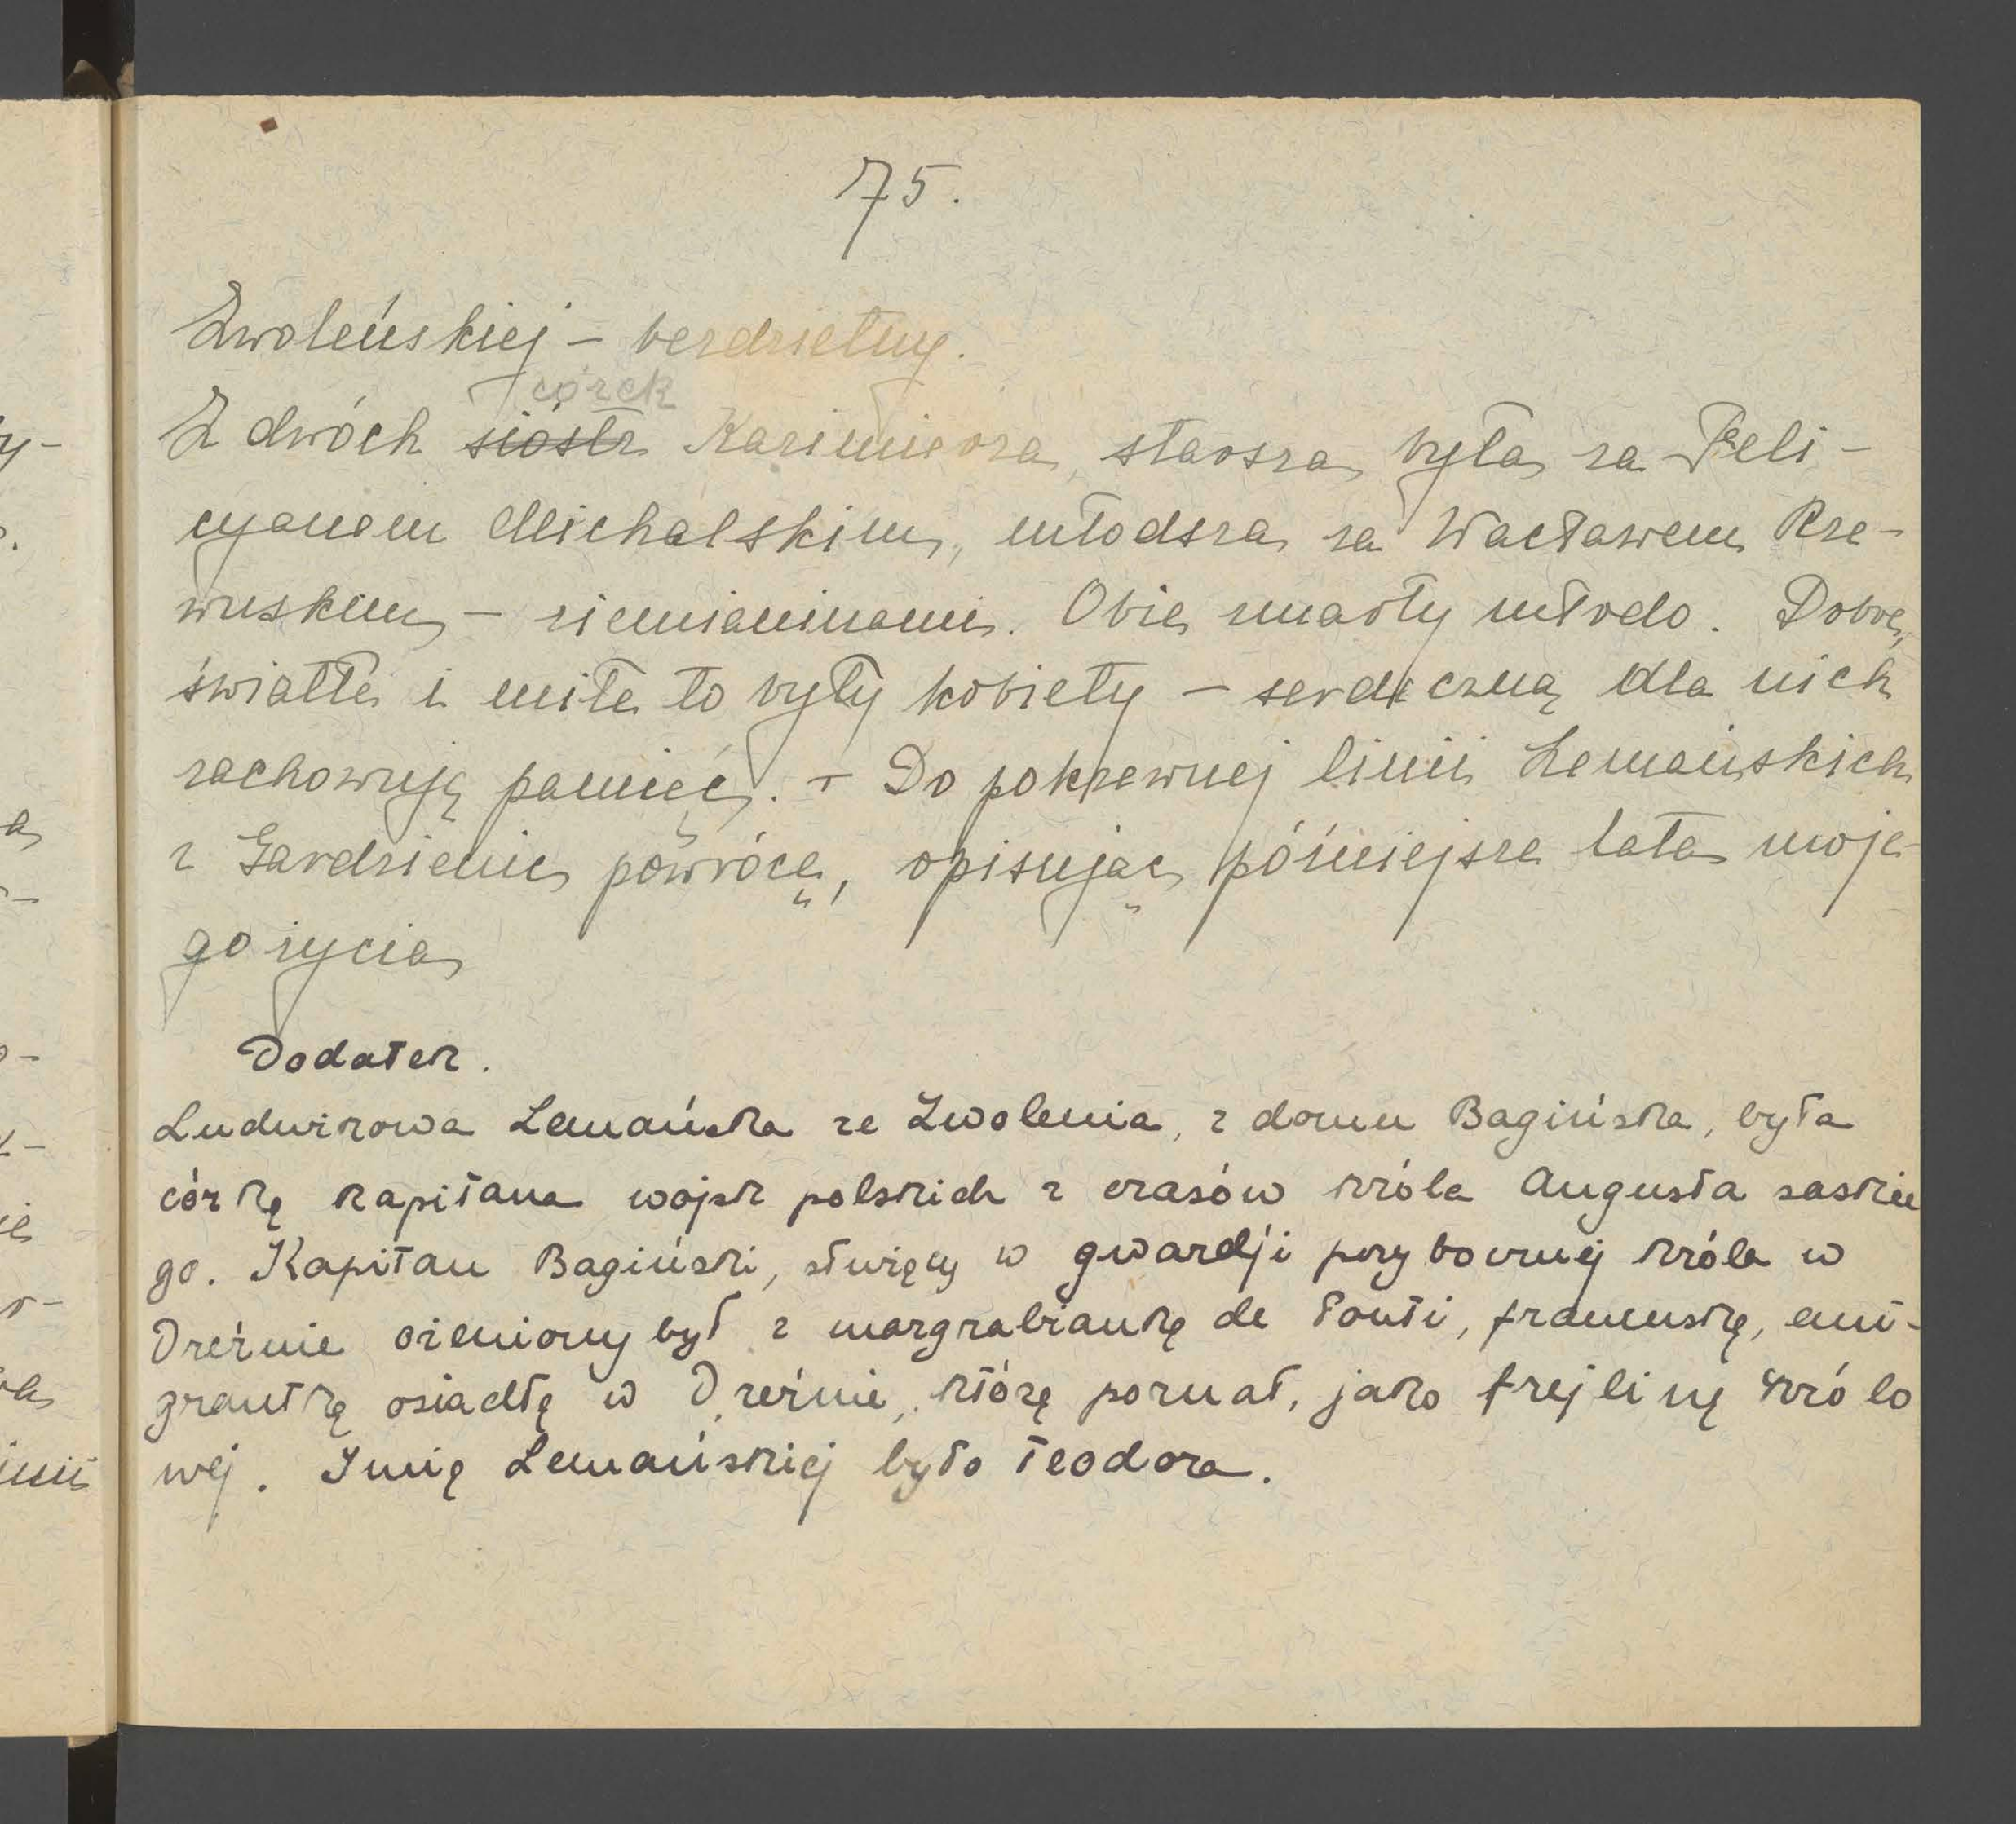 75.
Zwoleńskiej – bezdzietny.
córek
Z dwóch siostr Kazimierza, starsza była za Feli-
cyanem Michalskim, młodsza za Wacławem Rze-
wuskim – ziemianinami. Obie zmarły młodo. Dobre,
światłe i miłe to były kobiety – serdeczną dla nich
zachowuję pamięć. – Do pokrewnej linii Lemańskich
z Gardzienic powrócę, opisując późniejsze lata moje-
go życia
Dodatek.
Ludwikowa Lemańska ze Zwolenia, z domu Bagińska, była
córką kapitana wojsk polskich z czasów króla Augusta saskie
go. Kapitan Bagiński, służący w gwardji przybocznej króla w
Dreźnie ożeniony był z margrabianką de Fonti, francuską, emi-
grantką osiadłą w Dreźnie, którą poznał, jako frejlinę królo
wej. Imię Lemańskiej było Teodora.